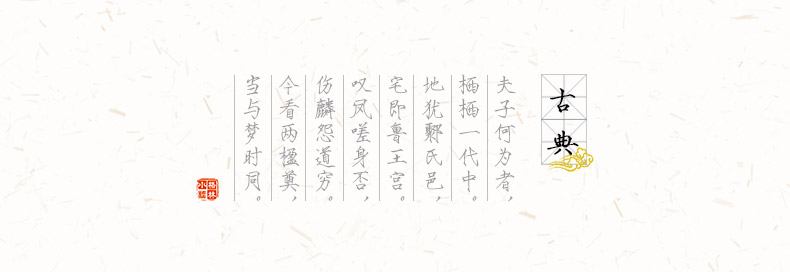 古典
夫子何为者,
栖栖一代中。
地犹鄹氏邑,
宅即鲁王宫。
叹凤嗟身否,
伤麟怨道穷。
今看两楹奠,
当与梦时同。